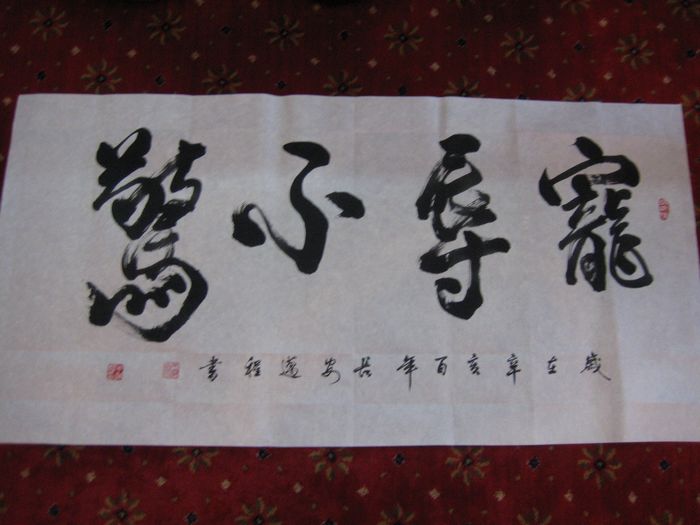 寵辱不驚
歲在辛亥百年長安遊程書